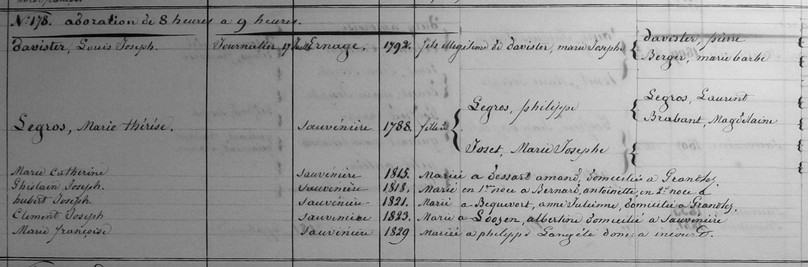 N° 178. adoration de 8 heures a 9 heures.
Davister, Louis Joseph. Journalier Ernage. 1792. fils illégitime de Davister, marie Joseph { Davister, pierre
Berger, marie barbe
Legros, philippe { Legros, Laurent
Brabant, Magdelaine
Legros, Marie thérèse. Sauvenière 1788. fille de {
Joset, Marie Josephe {
Marie Catherine Sauvenière 1815. Mariée a Dessart amand, domiciliée a Grandlez
Ghislain Joseph. Sauvenière 1818. Marié en 1re noce a Bernard, antoinette, en 2e noce a
hubert Joseph Sauvenière 1821. Marié a Bequevort, anne Julienne, domicilié a Grandlez.
Clement Joseph Sauvenière 1823. Marié a albertine domicilié a Sauvenière
Marie françoise Sauvenière 1829 Mariée a philippe a